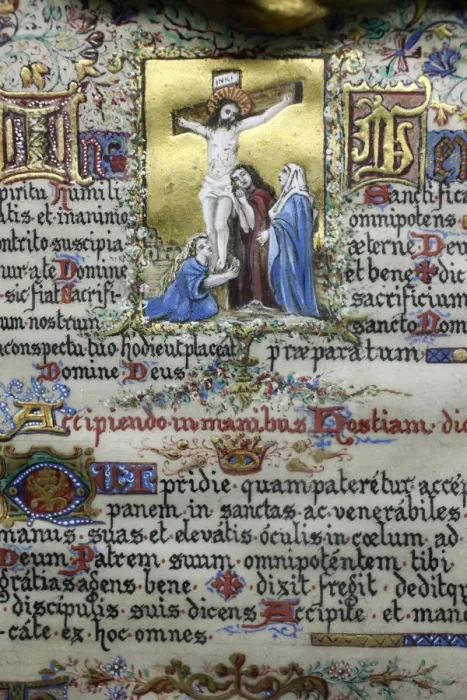 INRI
In
piritu humili
atis et
ontrito suscipia
mur a te Domine
sic fiat Sacrifi-
um nostrum
conspectu tuo hodie ut placeat
Domine Deus
Ven
Sanctifica
omnipotens
æterne Deu
et bene ✠ dic
sacrificium
sancto Nom
præparatum
Accipiendo in manibus Hostiam dic
QUI pridie quam pateretur accep
panem in sanctas ac venerábiles
manus suas et elevátis óculis in cœlum ad
Deum Patrem suum omnipoténtem tibi
grátias agens bene ✠ dixit fregit deditqu
discípulis suis dicens Accípite et mand
cáte ex hoc omnes